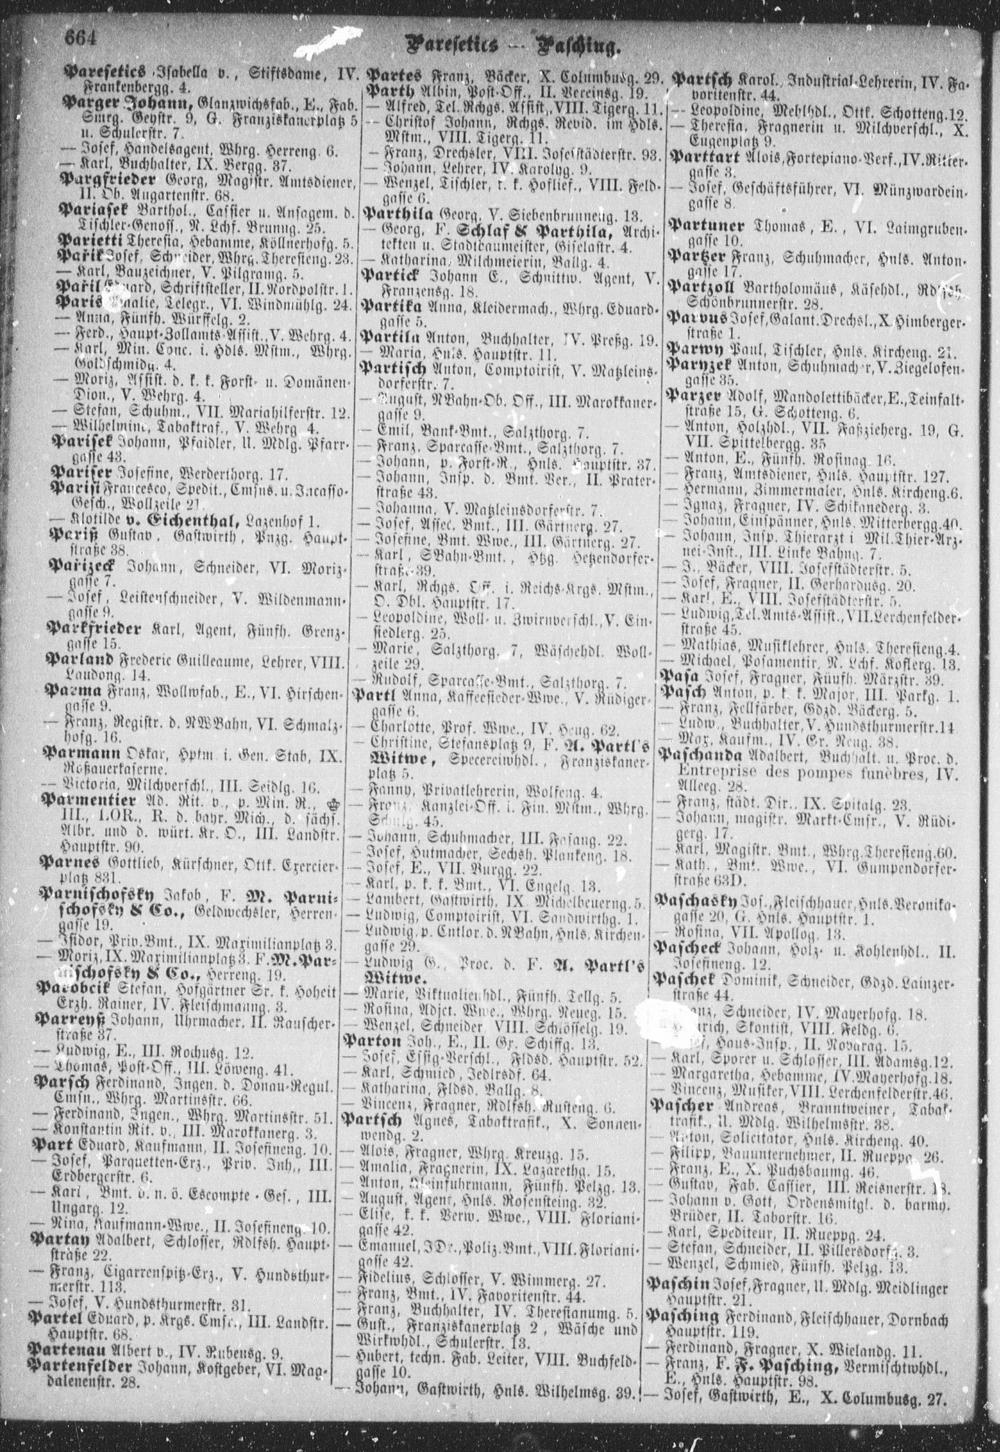 664
Paresetics — Pasching.
Paresetics Isabella v., Stiftsdame, IV.
Frankenbergg. 4.
Parger Johann, Glanzwichsfab., E., Fab.
Smrg. Geystr. 9, G. Franziskanerplatz 5
u. Schulerstr. 7.
— Josef, Handelsagent, Whrg. Herreng. 6.
— Karl, Buchhalter, IX. Bergg. 37.
Pargfrieder Georg, Magistr. Amtsdiener,
II. Ob. Augartenstr. 68.
Pariasek Barthol., Cassier u. Ansagem. d.
Tischler-Genoss., N. Lchf. Brunng. 25.
Parietti Theresia, Hebamme, Köllnerhofg. 5.
Pařik Josef, Schneider, Whrg. Theresieng. 23.
— Karl, Bauzeichner, V. Pilgramg. 5.
Pařil Eduard, Schriftsteller, II. Nordpolstr. 1.
Paris Amalie, Telegr., VI. Windmühlg. 24.
— Anna, Fünfh. Würffelg. 2.
— Ferd., Haupt-Zollamts-Assist., V. Wehrg. 4.
— Karl, Min. Conc. i. Hdls. Mstm., Whrg.
Goldschmidg. 4.
— Moriz, Assist. d. k. k. Forst- u. Domänen-
Dion., V. Wehrg. 4.
— Stefan, Schuhm., VII. Mariahilferstr. 12.
— Wilhelmine, Tabaktraf., V. Wehrg. 4.
Parisek Johann, Pfaidler, U. Mdlg. Pfarr-
gasse 43.
Pariser Josefine, Werderthorg. 17.
Parisi Francesco, Spedit., Cmsns. u. Incasso-
Gesch., Wollzeile 21.
— Klotilde v. Eichenthal, Lazenhof 1.
Pariß Gustav, Gastwirth, Pnzg. Haupt-
straße 38.
Pařizeck Johann, Schneider, VI. Moriz-
gasse 7.
— Josef, Leistenschneider, V. Wildenmann-
gasse 9.
Parkfrieder Karl, Agent, Fünfh. Grenz-
gasse 15.
Parland Frederic Guilleaume, Lehrer, VIII.
Laudong. 14.
Parma Franz, Wollwfab., E., VI. Hirschen-
gasse 9.
— Franz, Registr. d. NWBahn, VI. Schmalz-
hofg. 16.
Parmann Oskar, Hptm. i. Gen. Stab, IX.
Roßauerkaserne.
— Victoria, Milchverschl., III. Seidlg. 16.
Parmentier Ad. Rit. v., p. Min. R.,
III., LOR., R. d. bayr. Mich., d. sächs.
Albr. und d. würt. Kr. O., III. Landstr.
Hauptstr. 90.
Parnes Gottlieb, Kürschner, Ottk. Exercier-
platz 831.
Parnischofsky Jakob, F. M. Parni-
schofsky & Co., Geldwechsler, Herren-
gasse 19.
— Isidor, Priv. Bmt., IX. Maximilianplatz 3.
— Moriz, IX. Maximilianplatz 3. F. M. Par-
nischofsky & Co., Herreng. 19.
Parobcik Stefan, Hofgärtner Sr. k. Hoheit
Erzh. Rainer, IV. Fleischmanng. 3.
Parreyß Johann, Uhrmacher, II. Rauscher-
straße 37.
— Ludwig, E., III. Rochusg. 12.
— Thomas, Post-Off., III. Löweng. 41.
Parsch Ferdinand, Ingen. d. Donau-Regul.
Cmsn., Whrg. Martinsstr. 66.
— Ferdinand, Ingen., Whrg. Martinsstr. 51.
— Konstantin Rit. v., III. Marokkanerg. 3.
Part Eduard, Kaufmann, II. Josefineng. 10.
— Josef, Parquetten-Erz., Priv. Inh., III.
Erdbergerstr. 6.
— Karl, Bmt. d. n. ö. Escompte-Ges., III.
Ungarg. 12.
— Nina, Kaufmann-Wwe., II. Josefineng. 10.
Partay Adalbert, Schlosser, Rdlfsh. Haupt-
straße 22.
— Franz, Cigarrenspitz-Erz., V. Hundsthur-
merstr. 113.
— Josef, V. Hundsthurmerstr. 31.
Partel Eduard, p. Krgs. Cmsr., III. Landstr.
Hauptstr. 68.
Partenau Albert v., IV. Rubensg. 9.
Partenfelder Johann, Kostgeber, VI. Mag-
dalenenstr. 28.
Partes Franz, Bäcker, X. Columbusg. 29.
Parth Albin, Post-Off., II. Vereinsg. 19.
— Alfred, Tel. Rchgs. Assist., VIII. Tigerg. 11.
— Christof Johann, Rchgs. Revid. im Hdls.
Mstm., VIII. Tigerg. 11.
— Franz, Drechsler, VIII. Josefstädterstr. 93.
— Johann, Lehrer, IV. Karolyg. 9.
— Wenzel, Tischler, k. k. Hoflief., VIII. Feld-
gasse 6.
Parthila Georg, V. Siebenbrunneng. 13.
— Georg, F. Schlaf & Parthila, Archi-
tekten u. Stadtbaumeister, Giselastr. 4.
— Katharina, Milchmeierin, Ballg. 4.
Partick Johann E., Schnittw. Agent, V.
Franzensg. 18.
Partika Anna, Kleidermach., Whrg. Eduard-
gasse 5.
Partila Anton, Buchhalter, IV. Preßg. 19.
— Maria, Hnls. Hauptstr. 11.
Partisch Anton, Comptoirist, V. Matzleins-
dorferstr. 7.
— August, NBahn-Ob. Off., III. Marokkaner-
gasse 9.
— Emil, Bank-Bmt., Salzthorg. 7.
— Franz, Sparcasse-Bmt., Salzthorg. 7.
— Johann, p. Forst-R., Hnls. Hauptstr. 37.
— Johann, Insp. d. Bmt. Ver., II. Prater-
straße 43.
— Johanna, V. Matzleinsdorferstr. 7.
— Josef, Assec. Bmt., III. Gärtnerg. 27.
— Josefine, Bmt. Wwe., III. Gärtnerg. 27.
— Karl, SBahn-Bmt., Htzg. Hetzendorfer-
straße 39.
— Karl, Rchgs. Off. i. Reichs-Krgs. Mstm.,
O. Dbl. Hauptstr. 17.
— Leopoldine, Woll- u. Zwirnverschl., V. Ein-
siedlerg. 25.
— Marie, Salzthorg. 7, Wäschehdl. Woll-
zeile 29.
— Rudolf, Sparcasse-Bmt., Salzthorg. 7.
Partl Anna, Kaffeesieder-Wwe., V. Rüdiger-
gasse 6.
— Charlotte, Prof. Wwe., IV. Heug. 62.
— Christine, Stefansplatz 9, F. A. Partl's
Witwe, Specereiwhdl., Franziskaner-
platz 5.
— Fanny, Privatlehrerin, Wolfeng. 4.
— Franz, Kanzlei-Off. i. Fin. Mstm., Whrg.
Schulg. 45.
— Johann, Schuhmacher, III. Fasang. 22.
— Josef, Hutmacher, Sechsh. Plankeng. 18.
— Josef, E., VII. Burgg. 22.
— Karl, p. k. k. Bmt., VI. Engelg. 13.
— Lambert, Gastwirth, IX. Michelbeuerng. 5.
— Ludwig, Comptoirist, VI. Sandwirthg. 1.
— Ludwig, p. Cntlor. d. NBahn, Hnls. Kirchen-
gasse 29.
— Ludwig G., Proc. d. F. A. Partl's
Witwe.
— Marie, Viktualienhdl., Fünfh. Tellg. 5.
— Rosina, Adjct. Wwe., Whrg. Neueg. 15.
— Wenzel, Schneider, VIII. Schlösselg. 19.
Parton Joh., E., II. Gr. Schiffg. 13.
— Josef, Essig-Verschl., Fldsd. Hauptstr. 52.
— Karl, Schmied, Jedlrsdf. 64.
— Katharina, Fldsd. Ballg. 8.
— Vincenz, Fragner, Rdlfsh. Rusteng. 6.
Partsch Agnes, Tabaktrafik., X. Sonnen-
wendg. 2.
— Alois, Fragner, Whrg. Kreuzg. 15.
— Amalia, Fragnerin, IX. Lazarethg. 15.
— Anton, Kleinfuhrmann, Fünfh. Pelzg. 13.
— August, Agent, Hnls. Rosensteing. 32.
— Elise, k. k. Verw. Wwe., VIII. Floriani-
gasse 42.
— Emanuel, JDr., Poliz. Bmt., VIII. Floriani-
gasse 42.
— Fidelius, Schlosser, V. Wimmerg. 27.
— Franz, Bmt., IV. Favoritenstr. 44.
— Franz, Buchhalter, IV. Theresianumg. 5.
— Gust., Franziskanerplatz 2, Wäsche und
Wirkwhdl., Schulerstr. 13.
— Hubert, techn. Fab. Leiter, VIII. Buchfeld-
gasse 10.
— Johann, Gastwirth, Hnls. Wilhelmsg. 39.
Partsch Karol., Industrial-Lehrerin, IV. Fa-
voritenstr. 44.
— Leopoldine, Mehlhdl., Ottk. Schotteng. 12.
— Theresia, Fragnerin u. Milchverschl., X.
Eugenplatz 9.
Parttart Alois, Fortepiano-Verf., IV. Ritter-
gasse 3.
— Josef, Geschäftsführer, VI. Münzwardein-
gasse 8.
Partuner Thomas, E., VI. Laimgruben-
gasse 10.
Partzer Franz, Schuhmacher, Hnls. Anton-
gasse 17.
Partzoll Bartholomäus, Käsehdl., Rdlfsh.
Schönbrunnerstr. 28.
Parvus Josef, Galant. Drechsl., X. Himberger-
straße 1.
Parwy Paul, Tischler, Hnls. Kircheng. 21.
Paryzek Anton, Schuhmacher, V. Ziegelofen-
gasse 35.
Parzer Adolf, Mandolettibäcker, E., Teinfalt-
straße 15, G. Schotteng. 6.
— Anton, Holzhdl., VII. Faßzieherg. 19, G.
VII. Spittelbergg. 35
— Anton, E., Fünfh. Rosinag. 16.
— Franz, Amtsdiener, Hnls. Hauptstr. 127.
— Hermann, Zimmermaler, Hnls. Kircheng. 6.
— Ignaz, Fragner, IV. Schikanederg. 3.
— Johann, Einspänner, Hnls. Mitterbergg. 40.
— Johann, Insp. Thierarzt i Mil. Thier-Arz-
nei-Inst., III. Linke Bahng. 7.
— J., Bäcker, VIII. Josefstädterstr. 5.
— Josef, Fragner, II. Gerhardusg. 20.
— Karl, E., VIII. Josefstädterstr. 5.
— Ludwig, Tel. Amts-Assist., VII. Lerchenfelder-
straße 45.
— Mathias, Musiklehrer, Hnls. Theresieng. 4.
— Michael, Posamentir, N. Lchf. Koflerg. 13.
Pasa Josef, Fragner, Fünfh. Märzstr. 39.
Pasch Anton, p. k. k. Major, III. Parkg. 1.
— Franz, Fellfärber, Gdzd. Bäckerg. 5.
— Ludw., Buchhalter, V. Hundsthurmerstr. 14
— Max, Kaufm., IV. Gr. Neug. 38.
Paschanda Adalbert, Buchhalt. u. Proc. d.
Entreprise des pompes funèbres, IV.
Alleeg. 28.
— Franz, städt. Dir., IX. Spitalg. 23.
— Johann, magistr. Markt-Cmsr., V. Rüdi-
gerg. 17.
— Karl, Magistr. Bmt., Whrg. Theresieng. 60.
— Kath., Bmt. Wwe., VI. Gumpendorfer-
straße 63D.
Paschasky Jos., Fleischhauer, Hnls. Veronika-
gasse 20, G. Hnls. Hauptstr. 1.
— Rosina, VII. Apollog. 13.
Pascheck Johann, Holz- u. Kohlenhdl., II.
Josefineng. 12.
Paschek Dominik, Schneider, Gdzd. Lainzer-
straße 44.
Franz, Schneider, IV. Mayerhofg. 18.
rich, Skontist, VIII. Feldg. 6.
Haus-Insp., II. Novarag. 15.
— Karl, Sporer u. Schlosser, III. Adamsg. 12.
— Margaretha, Hebamme, IV. Mayerhofg. 18.
— Vincenz, Musiker, VIII. Lerchenfelderstr. 46.
Pascher Andreas, Branntweiner, Tabak-
trafik., U. Mdlg. Wilhelmsstr. 38.
— Anton, Solicitator, Hnls. Kircheng. 40.
— Filipp, Bauunternehmer, II. Rueppg. 26.
— Franz, E., X. Puchsbaumg. 46.
— Gustav, Fab. Cassier, III. Reisnerstr. 18.
— Johann v. Gott, Ordensmitgl. d. barmh.
Brüder, II. Taborstr. 16.
— Karl, Spediteur, II. Rueppg. 24.
— Stefan, Schneider, II. Pillersdorfg. 3.
— Wenzel, Schmied, Fünfh. Pelzg. 13.
Paschin Josef, Fragner, U. Mdlg. Meidlinger
Hauptstr. 21.
Pasching Ferdinand, Fleischhauer, Dornbach
Hauptstr. 119.
— Ferdinand, Fragner, X. Wielandg. 11.
— Franz, F. F. Pasching, Vermischtwhdl.,
E., Hnls. Hauptstr. 98.
— Josef, Gastwirth, E., X. Columbusg. 27.